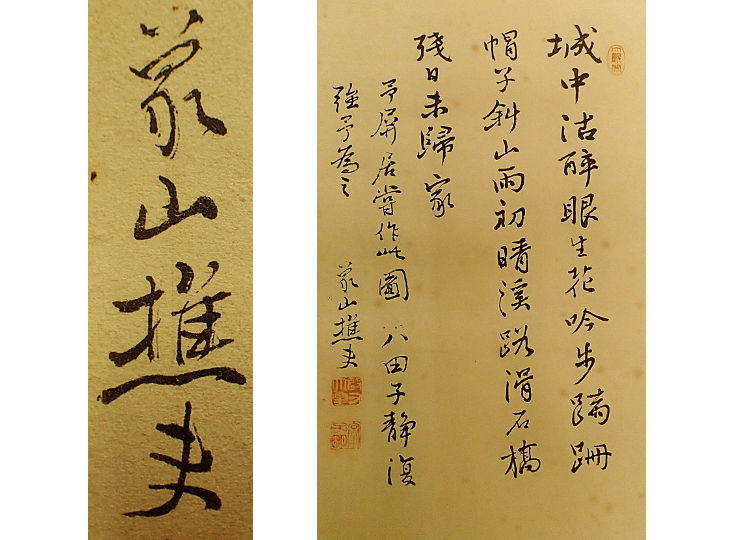 蒙山樵夫
城中沽酔眼生花吟步蹣跚
帽子斜山雨初晴溪路滑石橋
殘日未歸家
予屏居嘗作此圖八田子静復
強予為之 蒙山樵夫